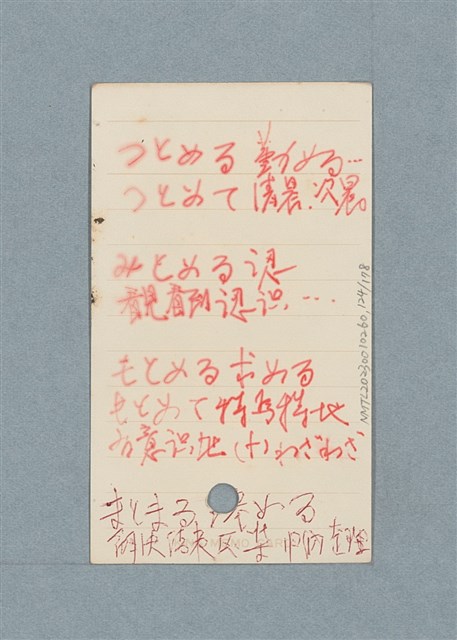 つとめる 勤める…
つとめて 清晨.次晨。
みとめる 認
看見看到 認識、…
もとめる 求める
もとめて 特為特地
有意識地 (十)わざわざ
まとまる める
解決
NMTL20230010260,124/178